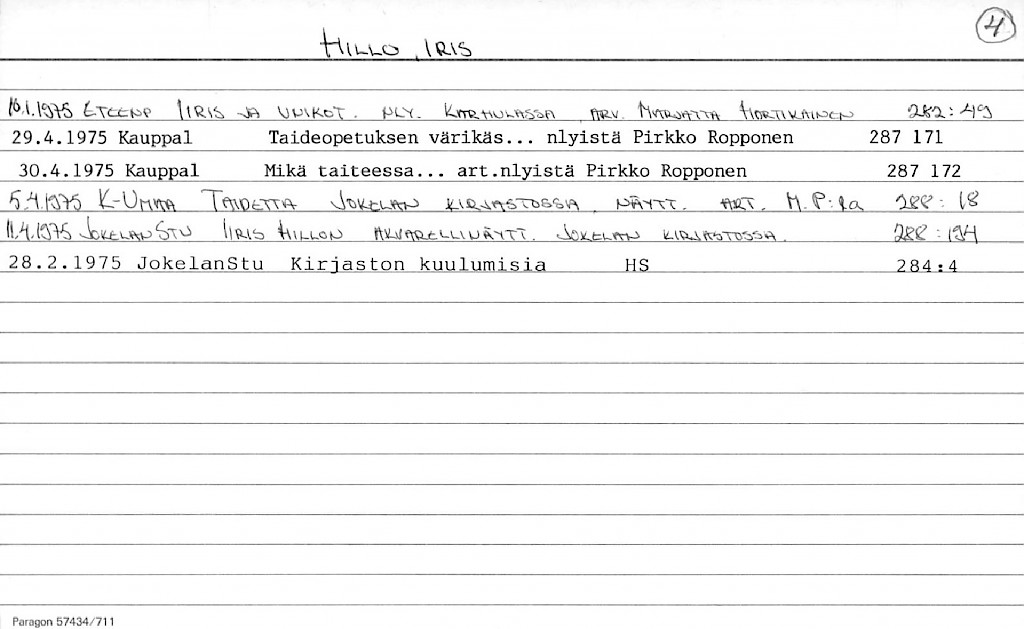 4
HILLO, IRIS
10.1.1975 ETEENP IIRIS JA UNIKOT. NLY. KARHULASSA, ARV. MARJATTA HORTIKAINEN 282:49
29.4.1975 Kauppal Taideopetuksen värikäs... nlyistä Pirkko Ropponen 287 171
30.4.1975 Kauppal Mikä taiteessa... art.nlyistä Pirkko Ropponen 287 172
5.4.1975 K-UMAA TAIDETTA JOKELAN KIRJASTOSSA, NÄYTT. ART. M.P:la 288:18
11.4.1975 JOKELANSTU IIRIS HILLON AKVARELLINÄYTT. JOKELAN KIRJASTOSSA. 288:194
28.2.1975 JokelanStu Kirjaston kuulumisia HS 284:4
Paragon 57434/711